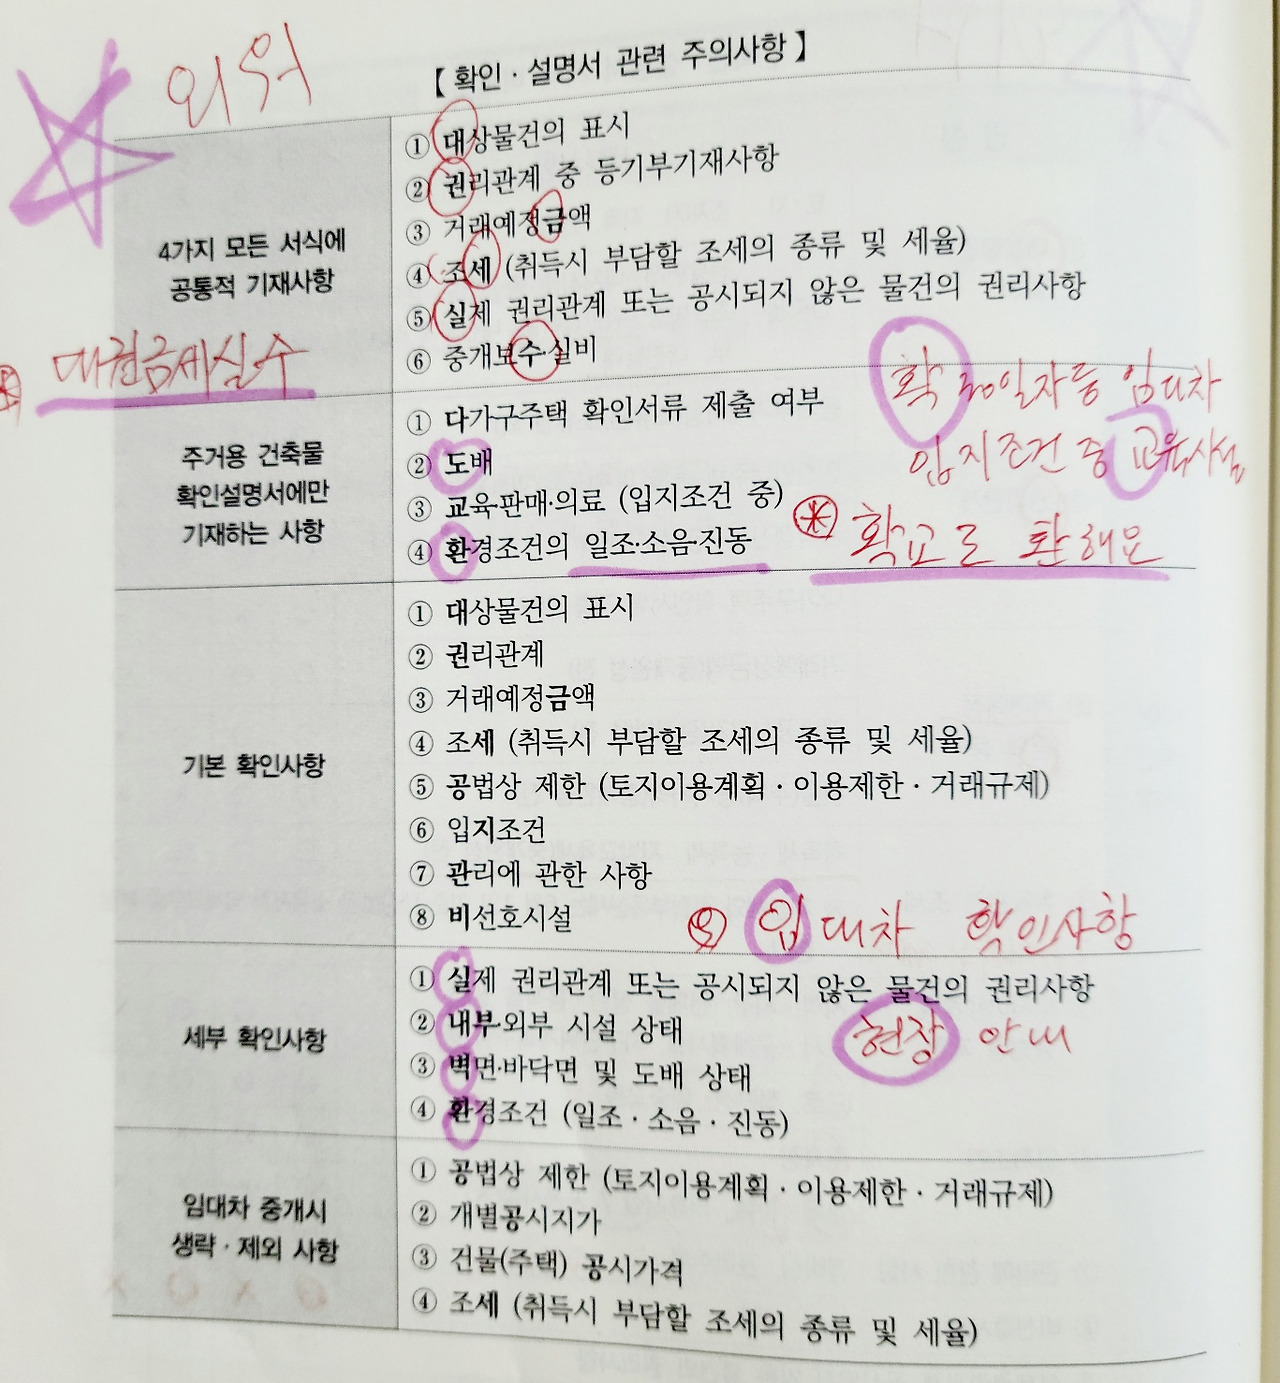 외워
【 확인 · 설명서 관련 주의사항 】
4가지 모든 서식에
공통적 기재사항
대권금세실수
① 대상물건의 표시
② 권리관계 중 등기부기재사항
③ 거래예정금액
④ 조세 (취득시 부담할 조세의 종류 및 세율)
⑤ 실제 권리관계 또는 공시되지 않은 물건의 권리사항
⑥ 중개보수·실비
주거용 건축물
확인설명서에만
기재하는 사항
① 다가구주택 확인서류 제출 여부
② 도배
③ 교육·판매·의료 (입지조건 중)
④ 환경조건의 일조·소음·진동
확 일자등 임대차
입지조건 중 교육시설
확교도 환해요
기본 확인사항
① 대상물건의 표시
② 권리관계
③ 거래예정금액
④ 조세 (취득시 부담할 조세의 종류 및 세율)
⑤ 공법상 제한 (토지이용계획 · 이용제한 · 거래규제)
⑥ 입지조건
⑦ 관리에 관한 사항
⑧ 비선호시설
⑨ 임대차 확인사항
세부 확인사항
① 실제 권리관계 또는 공시되지 않은 물건의 권리사항
② 내부·외부 시설 상태
③ 벽면·바닥면 및 도배 상태
④ 환경조건 (일조 · 소음 · 진동)
현장 안내
임대차 중개시
생략 · 제외 사항
① 공법상 제한 (토지이용계획 · 이용제한 · 거래규제)
② 개별공시지가
③ 건물(주택) 공시가격
④ 조세 (취득시 부담할 조세의 종류 및 세율)